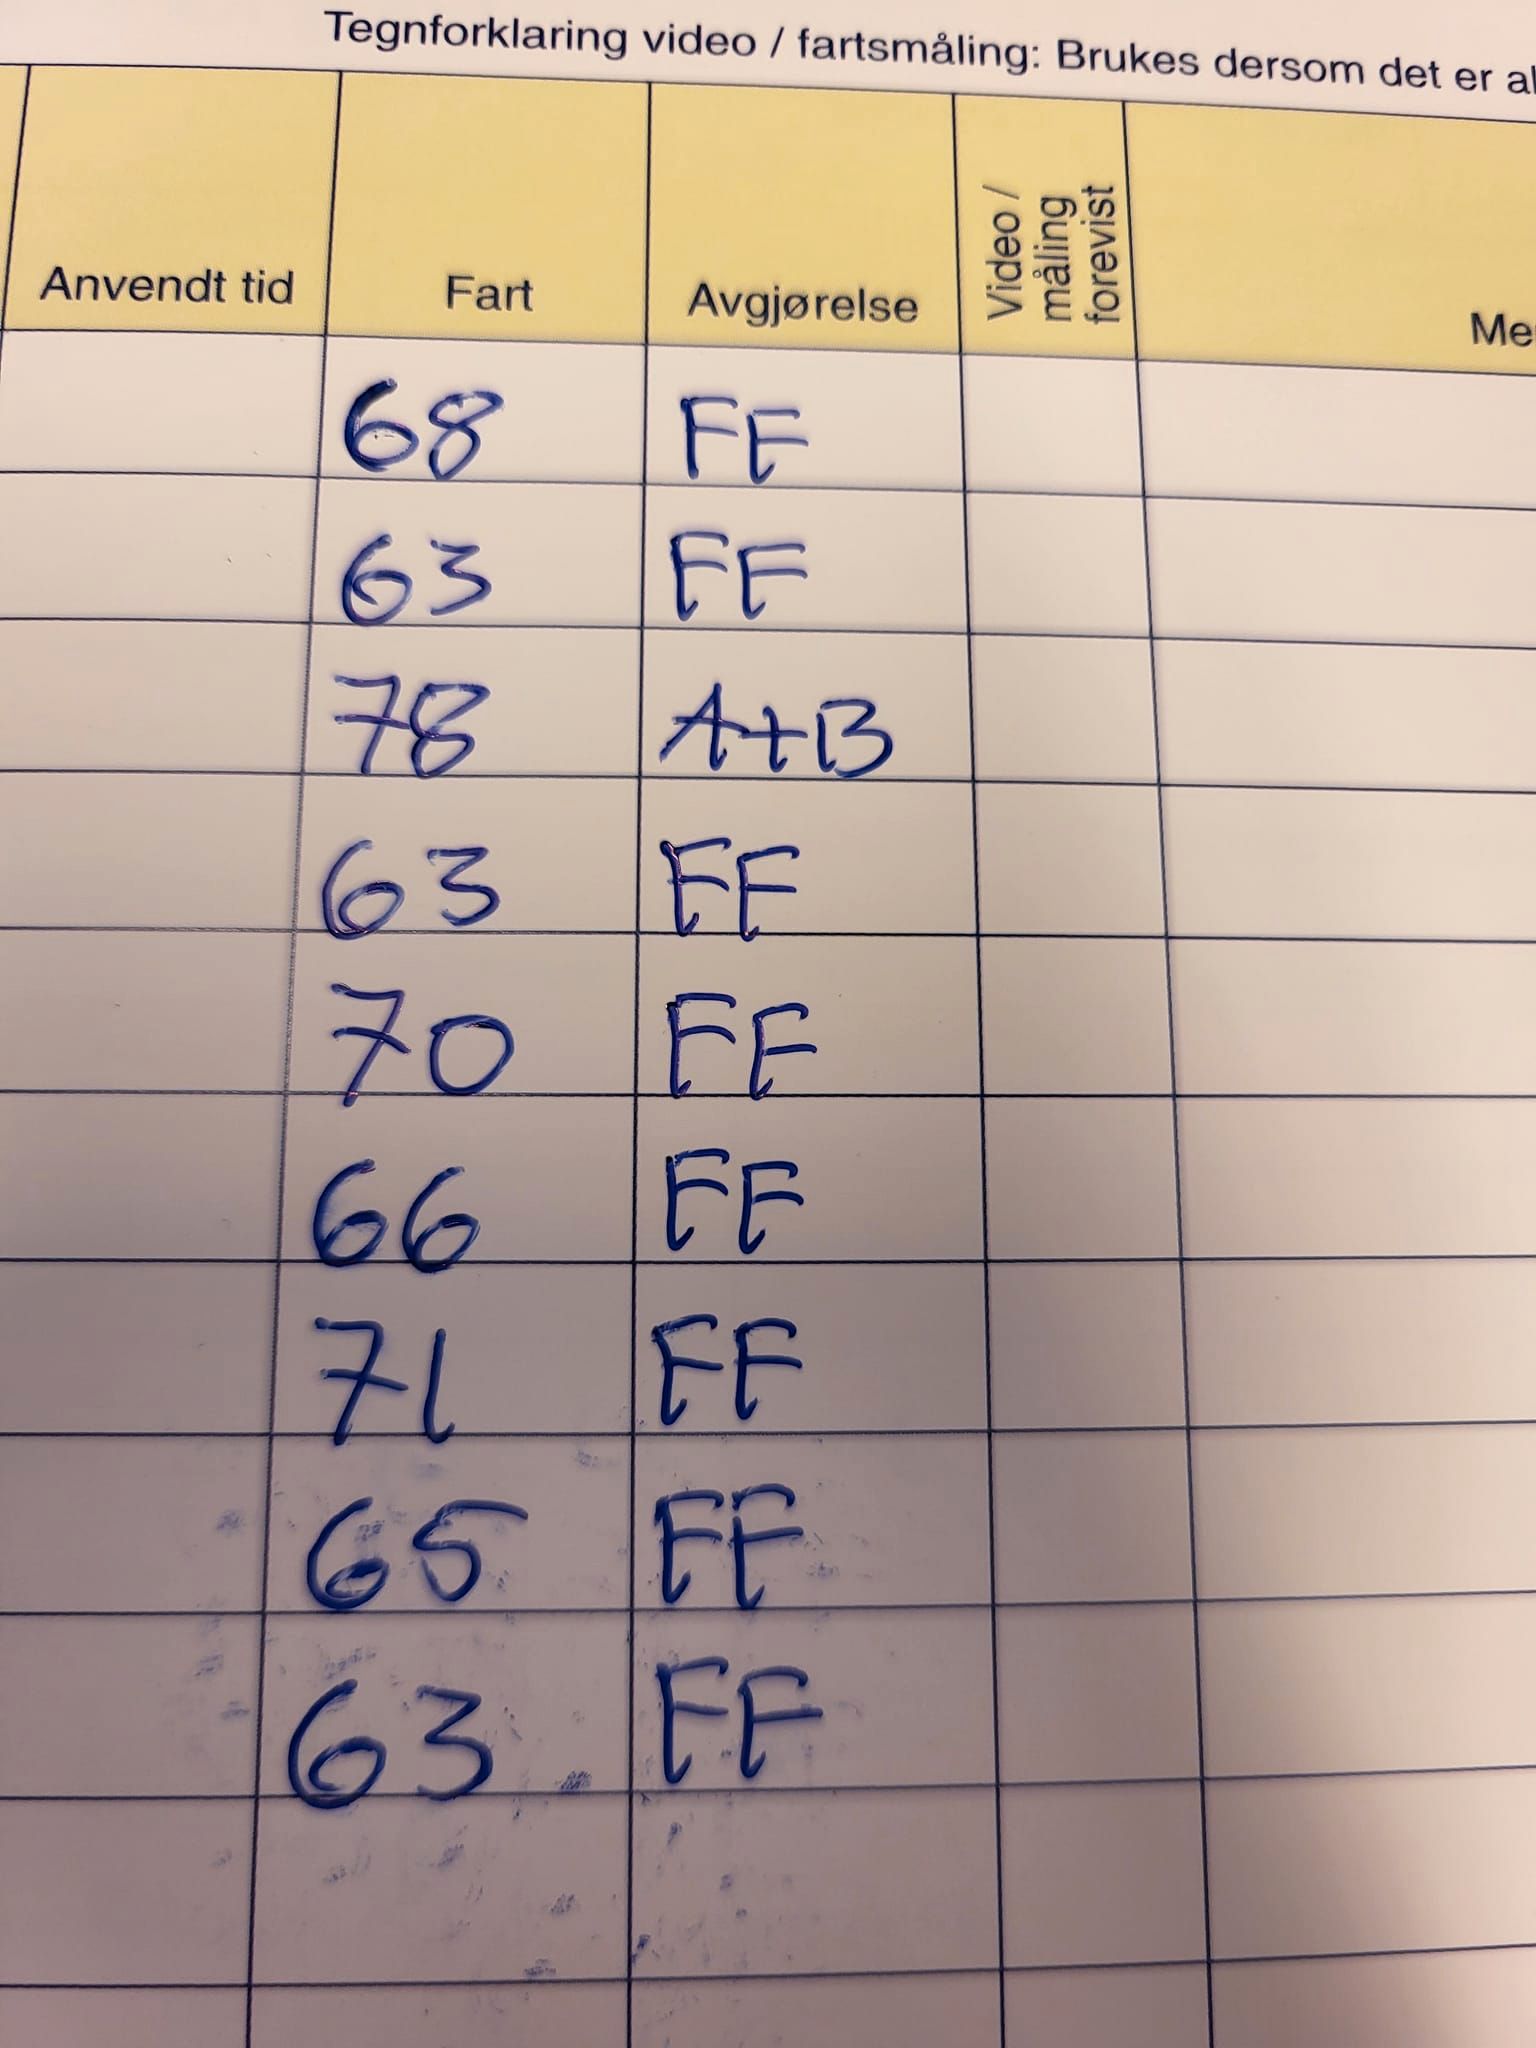 Tegnforklaring video / fartsmåling: Brukes dersom det er
Anvendt tid Fart Avgjørelse Video / måling forevist
68 FF
63 FF
78 A+B
63 FF
70 FF
66 FF
71 FF
65 FF
63 FF